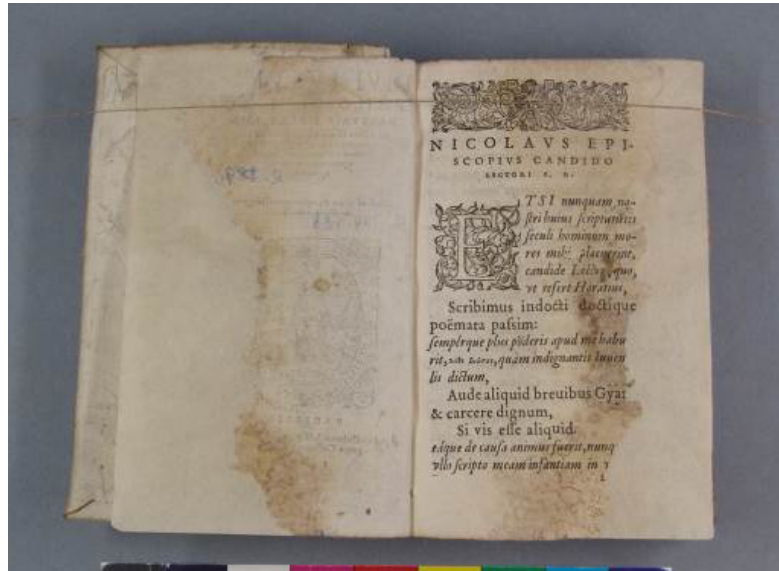 NICOLAVS EPI-
SCOPIVS CANDIDO
LECTORI S. D.
ETSI nunquam no-
stri huius scripturientis
seculi hominum mo-
res mihi placuerint,
candide Lector, quo,
vt refert Horatius,
Scribimus indocti doctique
poëmata passim:
semperque plus põderis apud me habu
rit, quam indignantis Iuuen
lis dictum,
Aude aliquid breuibus Gyar
& carcere dignum,
Si vis esse aliquid.
eáque de causa animus fuerit, nunq
vllo scripto meam infantiam in